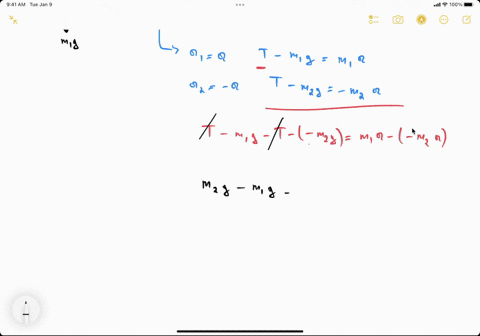 9:41 AM Tue Jan 9
100%
m₁g
a₁ = a T - m₁g = m₁a
a₂ = -a T - m₂g = -m₂a
T - m₁g - T - (-m₂g) = m₁a - (-m₂a)
m₂g - m₁g =